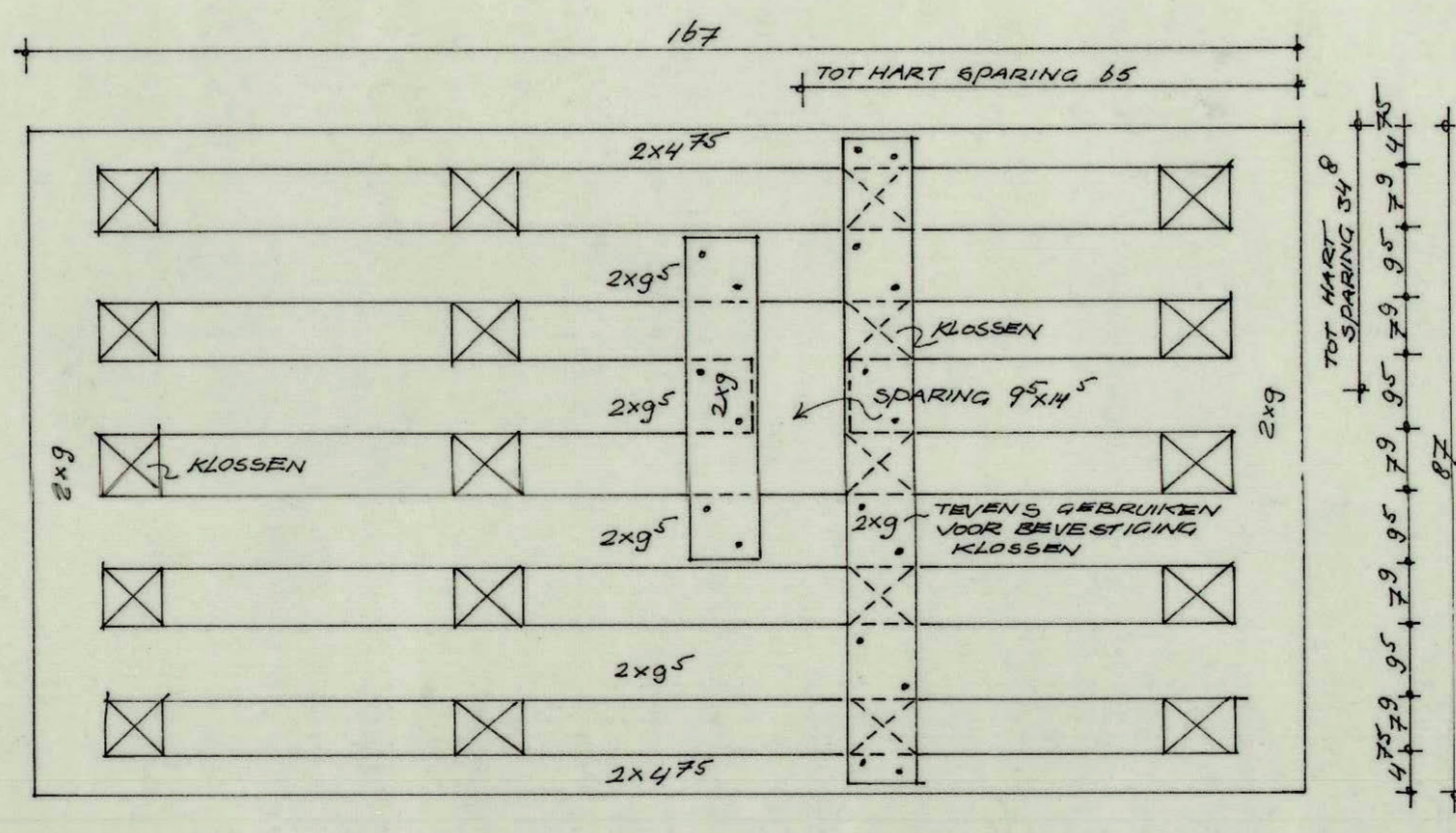 167
TOT HART SPARING 65
2x4⁷⁵
2x9⁵
KLOSSEN
2x9⁵
2x9
SPARING 9⁵x14⁵
2x9
KLOSSEN
2x9
2x9⁵
2x9
TEVENS GEBRUIKEN
VOOR BEVESTIGING
KLOSSEN
2x9⁵
2x4⁷⁵
TOT HART
SPARING 34⁸
4⁷⁵
7⁹
9⁵
7⁹
9⁵
7⁹
9⁵
7⁹
9⁵
7⁹
4⁷⁵
87